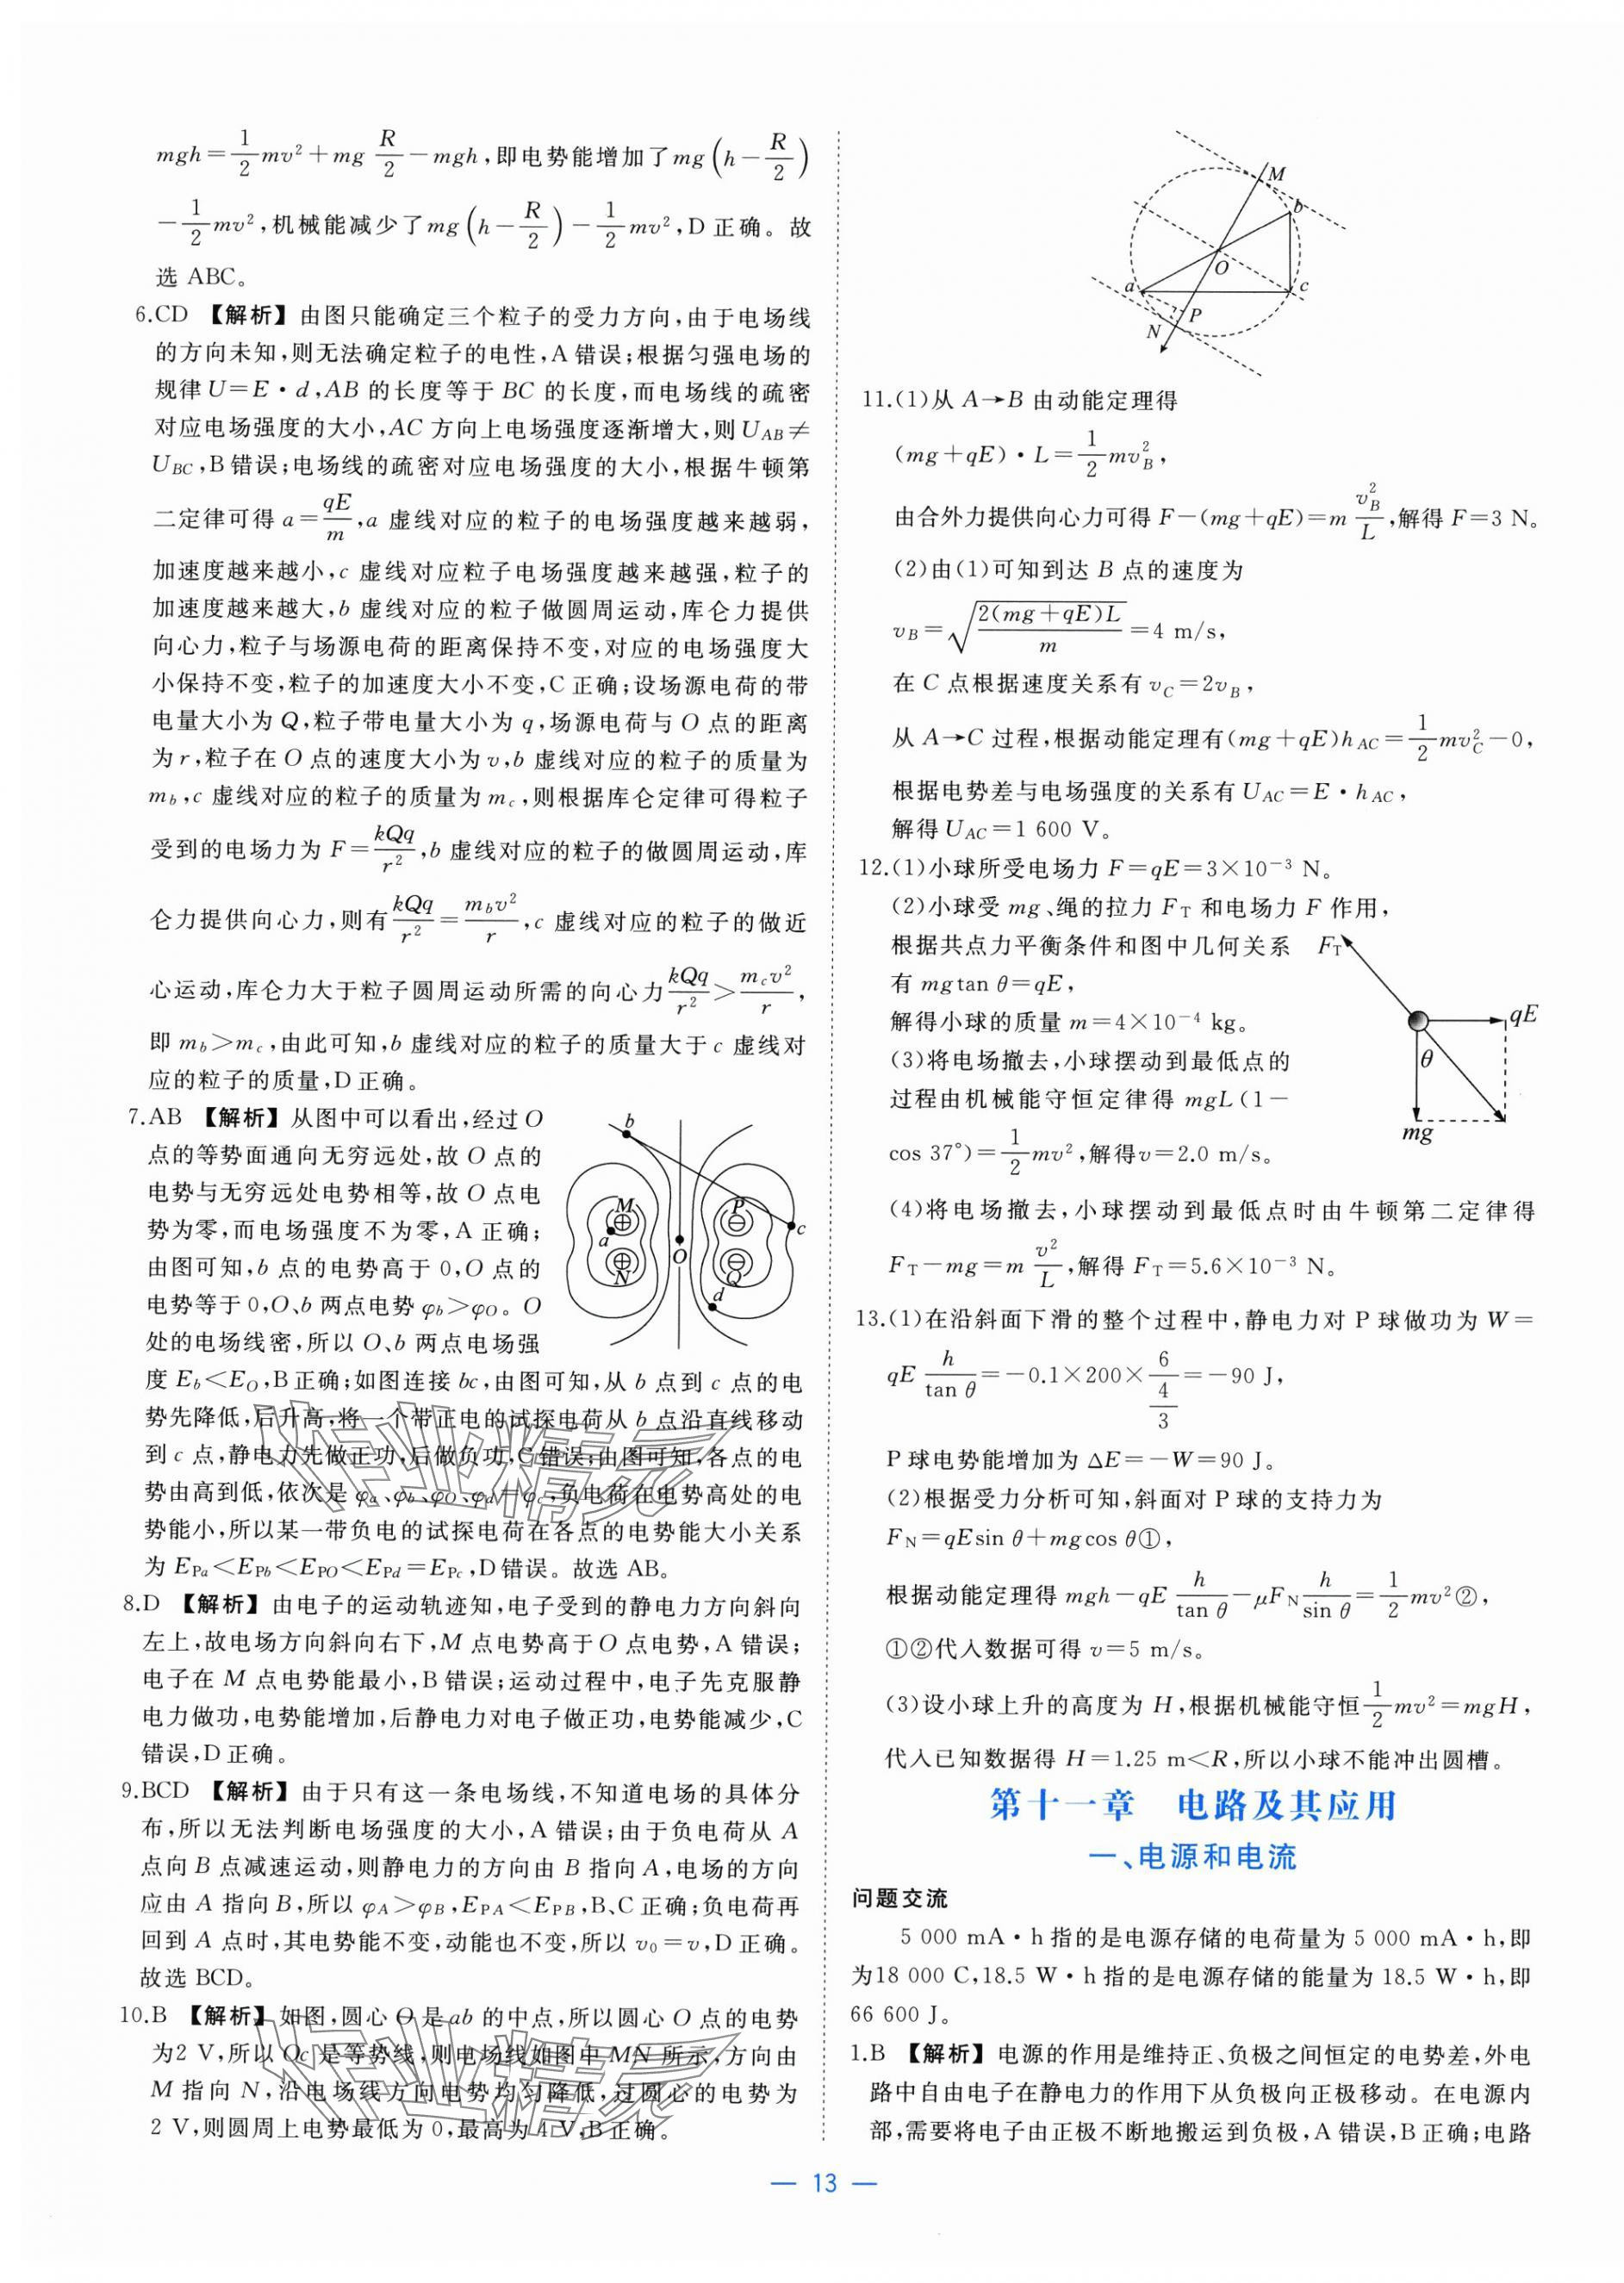 mgh=1/2mv²+mg R/2-mgh,即电势能增加了mg(h-R/2)
-1/2mv²,机械能减少了mg(h-R/2)-1/2mv²,D正确。故
选ABC。
6.CD 【解析】由图只能确定三个粒子的受力方向,由于电场线
的方向未知,则无法确定粒子的电性,A错误;根据匀强电场的
规律U=E·d,AB的长度等于BC的长度,而电场线的疏密
对应电场强度的大小,AC方向上电场强度逐渐增大,则U_AB≠
U_BC,B错误;电场线的疏密对应电场强度的大小,根据牛顿第
二定律可得a=qE/m,a虚线对应的粒子的电场强度越来越弱,
加速度越来越小,c虚线对应粒子电场强度越来越强,粒子的
加速度越来越大,b虚线对应的粒子做圆周运动,库仑力提供
向心力,粒子与场源电荷的距离保持不变,对应的电场强度大
小保持不变,粒子的加速度大小不变,C正确;设场源电荷的带
电量大小为Q,粒子带电量大小为q,场源电荷与O点的距离
为r,粒子在O点的速度大小为v,b虚线对应的粒子的质量为
m_b,c虚线对应的粒子的质量为m_c,则根据库仑定律可得粒子
受到的电场力为F=kQq/r²,b虚线对应的粒子的做圆周运动,库
仑力提供向心力,则有kQq/r²=m_bv²/r,c虚线对应的粒子的做近
心运动,库仑力大于粒子圆周运动所需的向心力kQq/r²>m_cv²/r,
即m_b>m_c,由此可知,b虚线对应的粒子的质量大于c虚线对
应的粒子的质量,D正确。
7.AB 【解析】从图中可以看出,经过O
点的等势面通向无穷远处,故O点的
电势与无穷远处电势相等,故O点电
势为零,而电场强度不为零,A正确;
由图可知,b点的电势高于0,O点的
电势等于0,O、b两点电势φ_b>φ_O。O
处的电场线密,所以O、b两点电场强
度E_b<E_O,B正确;如图连接bc,由图可知,从b点到c点的电
势先降低,后升高,将一个带正电的试探电荷从b点沿直线移动
到c点,静电力先做正功,后做负功,C错误;由图可知,各点的电
势由高到低,依次是φ_a、φ_b、φ_O、φ_d=φ_c,负电荷在电势高处的电
势能小,所以某一带负电的试探电荷在各点的电势能大小关系
为E_Pa<E_Pb<E_PO<E_Pd=E_Pc,D错误。故选AB。
b
M
P
a
O
c
N
Q
d
8.D 【解析】由电子的运动轨迹知,电子受到的静电力方向斜向
左上,故电场方向斜向右下,M点电势高于O点电势,A错误;
电子在M点电势能最小,B错误;运动过程中,电子先克服静
电力做功,电势能增加,后静电力对电子做正功,电势能减少,C
错误,D正确。
9.BCD 【解析】由于只有这一条电场线,不知道电场的具体分
布,所以无法判断电场强度的大小,A错误;由于负电荷从A
点向B点减速运动,则静电力的方向由B指向A,电场的方向
应由A指向B,所以φ_A>φ_B,E_PA<E_PB,B、C正确;负电荷再
回到A点时,其电势能不变,动能也不变,所以v₀=v,D正确。
故选BCD。
10.B 【解析】如图,圆心O是ab的中点,所以圆心O点的电势
为2 V,所以Oc是等势线,则电场线如图中MN所示,方向由
M指向N,沿电场线方向电势均匀降低,过圆心的电势为
2 V,则圆周上电势最低为0,最高为4 V,B正确。
作业精灵
作业精灵
M
b
O
a
c
P
N
11.(1)从A→B由动能定理得
(mg+qE)·L=1/2mv_B²,
由合外力提供向心力可得F-(mg+qE)=m v_B²/L,解得F=3 N。
(2)由(1)可知到达B点的速度为
v_B=√(2(mg+qE)L/m)=4 m/s,
在C点根据速度关系有v_C=2v_B,
从A→C过程,根据动能定理有(mg+qE)h_AC=1/2mv_C²-0,
根据电势差与电场强度的关系有U_AC=E·h_AC,
解得U_AC=1 600 V。
12.(1)小球所受电场力F=qE=3×10⁻³ N。
(2)小球受mg、绳的拉力F_T和电场力F作用,
根据共点力平衡条件和图中几何关系
有mgtan θ=qE,
解得小球的质量m=4×10⁻⁴ kg。
(3)将电场撤去,小球摆动到最低点的
过程由机械能守恒定律得mgL(1-
cos 37°)=1/2mv²,解得v=2.0 m/s。
F_T
qE
θ
mg
(4)将电场撤去,小球摆动到最低点时由牛顿第二定律得
F_T-mg=m v²/L,解得F_T=5.6×10⁻³ N。
13.(1)在沿斜面下滑的整个过程中,静电力对P球做功为W=
qE h/tan θ=-0.1×200×6/(4/3)=-90 J,
P球电势能增加为ΔE=-W=90 J。
(2)根据受力分析可知,斜面对P球的支持力为
F_N=qEsin θ+mgcos θ①,
根据动能定理得mgh-qE h/tan θ-μF_N h/sin θ=1/2mv²②,
①②代入数据可得v=5 m/s。
(3)设小球上升的高度为H,根据机械能守恒1/2mv²=mgH,
代入已知数据得H=1.25 m<R,所以小球不能冲出圆槽。
第十一章 电路及其应用
一、电源和电流
问题交流
5 000 mA·h指的是电源存储的电荷量为5 000 mA·h,即
为18 000 C,18.5 W·h指的是电源存储的能量为18.5 W·h,即
66 600 J。
1.B 【解析】电源的作用是维持正、负极之间恒定的电势差,外电
路中自由电子在静电力的作用下从负极向正极移动。在电源内
部,需要将电子由正极不断地搬运到负极,A错误,B正确;电路
— 13 —